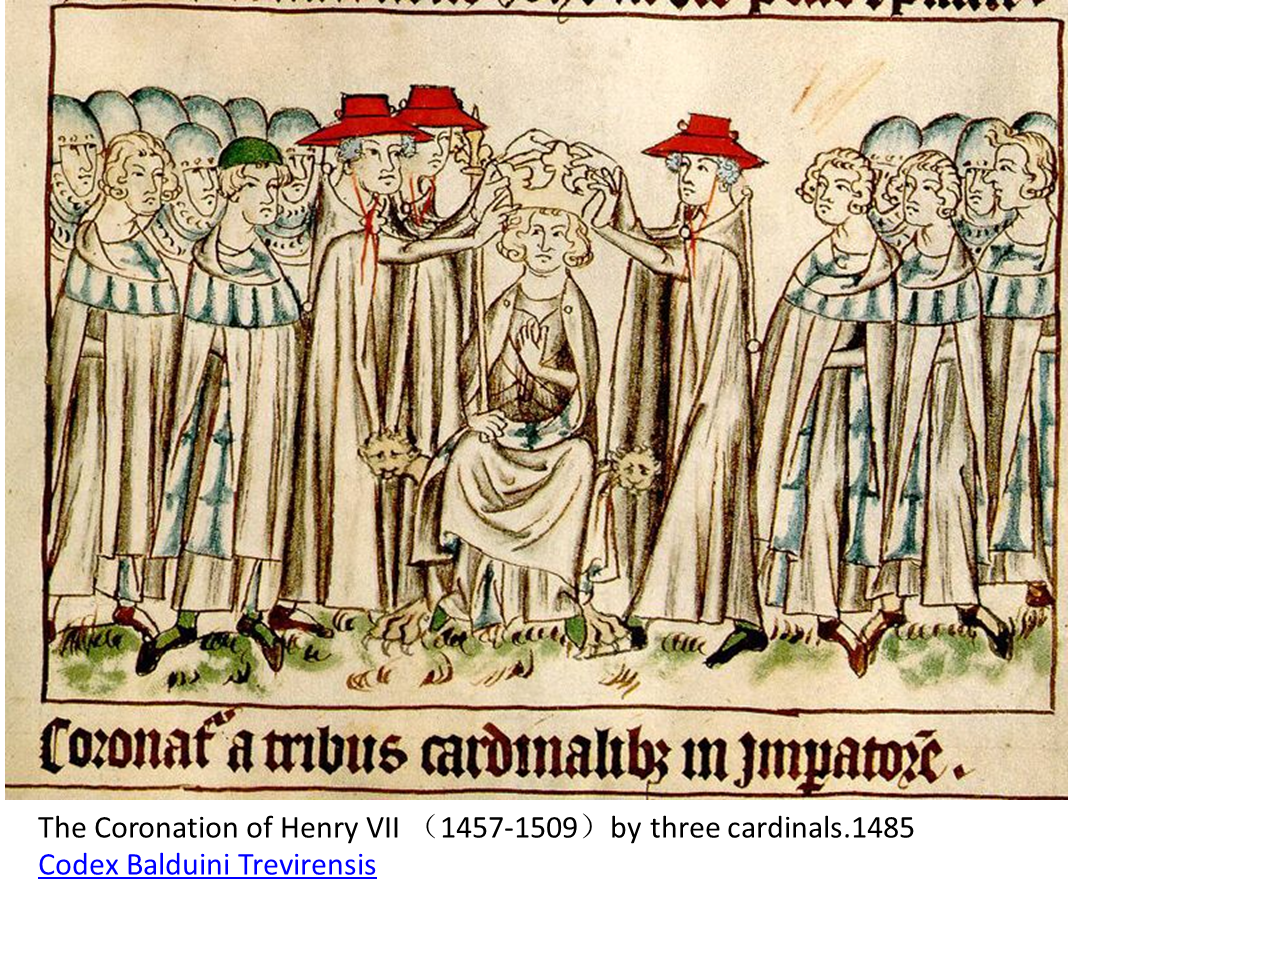 Coronat' a tribus cardinalibꝫ in Jmpatorē.
The Coronation of Henry VII （1457-1509）by three cardinals.1485
Codex Balduini Trevirensis